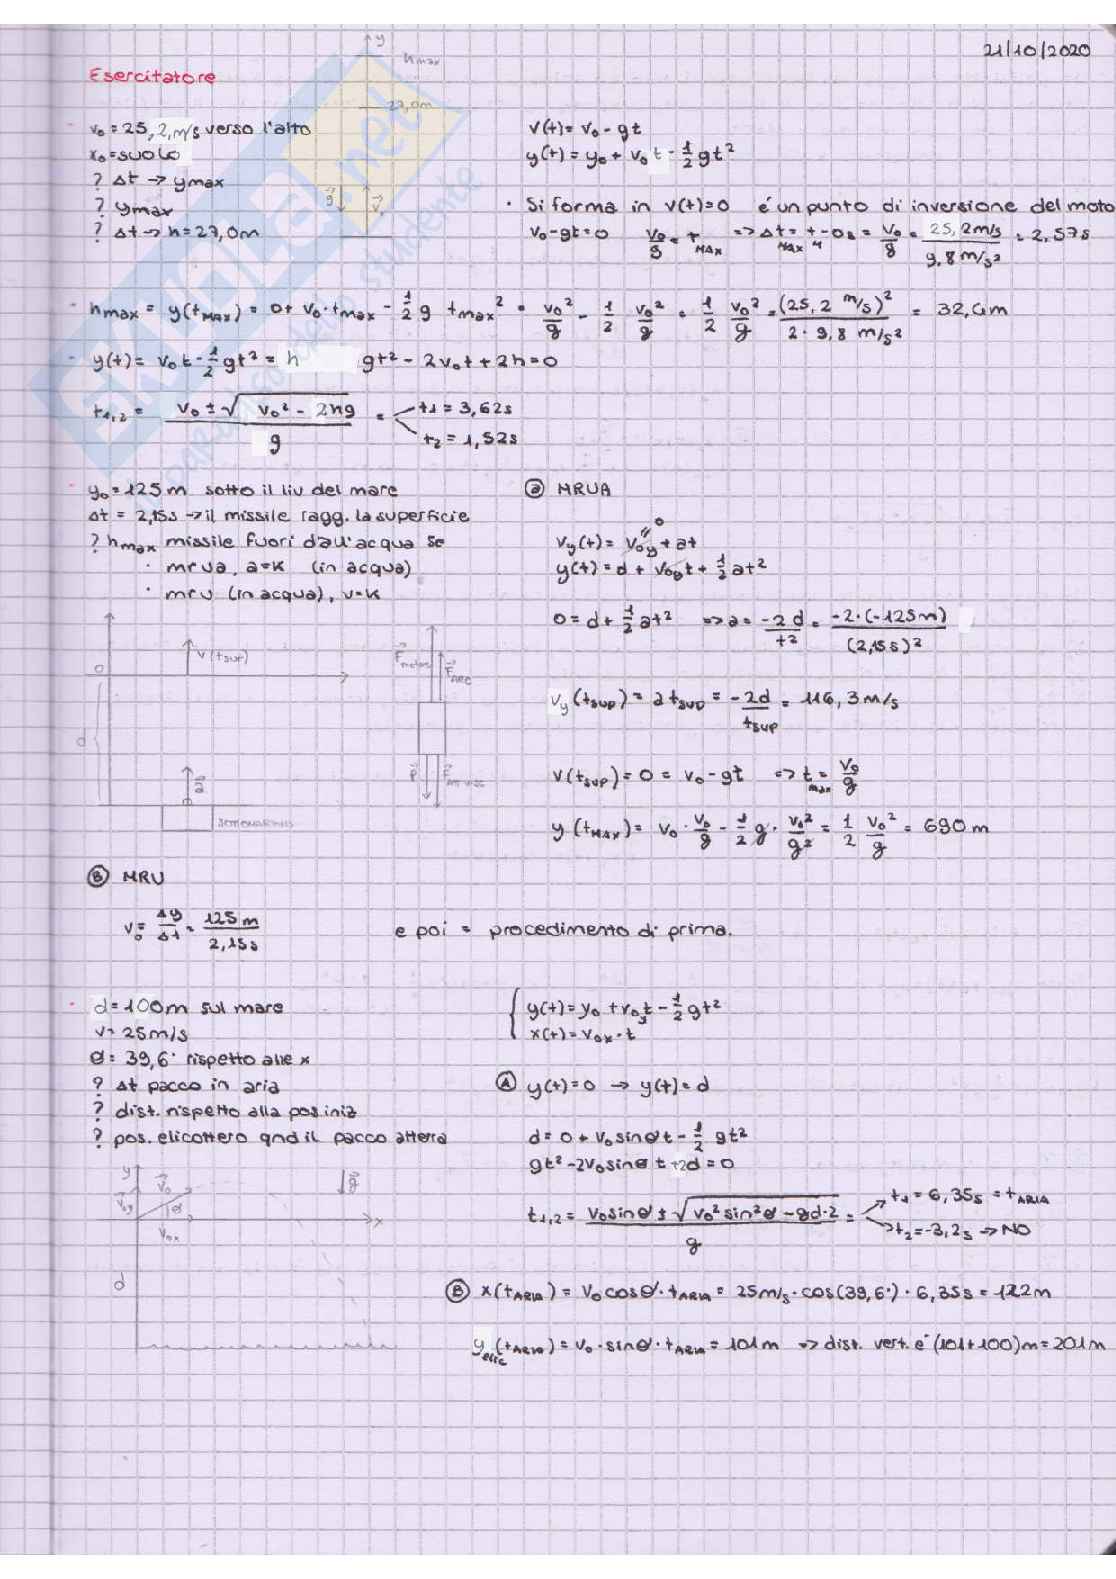 21/10/2020
y
hmax
Esercitatore
27,0m
v₀ = 25,2 m/s verso l'alto
x₀ = suolo
? Δt → ymax
? ymax
? Δt → h = 27,0m
g
v
V(t) = v₀ - gt
y(t) = y₀ + v₀t - 1/2 gt²
· Si forma in v(t)=0 é un punto di inversione del moto
v₀-gt=0 v₀/g = t MAX => Δt MAX = t - 0s = v₀/g = 25,2m/s / 9,8 m/s² = 2,57s
- hmax = y(tMAX) = 0 + v₀·tmax - 1/2 g tmax² = v₀²/g - 1/2 v₀²/g = 1/2 v₀²/g = (25,2 m/s)² / 2·9,8 m/s² = 32,4m
- y(t) = v₀t - 1/2 gt² = h gt² - 2v₀t + 2h = 0
t1,2 = v₀ ± √v₀² - 2hg / g = t1 = 3,62s
t2 = 1,52s
- y₀ = 125m sotto il liv del mare
Δt = 2,15s → il missile ragg. la superficie
? hmax missile fuori dall'acqua se
· mrua, a=k (in acqua)
· mru (in acqua), v=k
0
v(tsup)
d
a
Fmotore
FARC
P
ⓐ MRUA
Vy(t) = V0y + at
0
y(t) = d + V0yt + 1/2 at²
0 = d + 1/2 at² => a = -2d/t² = -2·(-125m) / (2,15s)²
Vy(tSUP) = a tSUP = -2d/tSUP = 116,3 m/s
V(tSUP) = 0 = v₀ - gt => t max = V₀/g
y(tMAX) = v₀ · v₀/g - 1/2 g · v₀²/g² = 1/2 v₀²/g = 690m
Ⓑ MRU
v₀ = Δy/Δt = 125m / 2,15s
e poi = procedimento di prima.
- d = 100m sul mare
v = 25m/s
θ = 39,6° rispetto alle x
? Δt pacco in aria
? dist. rispetto alla pos. iniz
? pos. elicottero qnd il pacco atterra
y
v₀
v0y
θ
v0x
x
g
d
y(t) = y₀ + v0y t - 1/2 gt²
x(t) = v0x · t
Ⓐ y(t) = 0 → y(t) = d
d = 0 + v₀ sinθ t - 1/2 gt²
gt² - 2v₀ sinθ t + 2d = 0
t1,2 = v₀sinθ ± √v₀² sin²θ - gd·2 / g = t1 = 6,35s = tARIA
t2 = -3,2s → NO
Ⓑ x(tARIA) = v₀ cosθ · tARIA = 25m/s · cos(39,6°) · 6,35s = 122m
y elic (tARIA) = v₀ · sinθ · tARIA = 101m => dist. vert. é (101+100)m = 201m